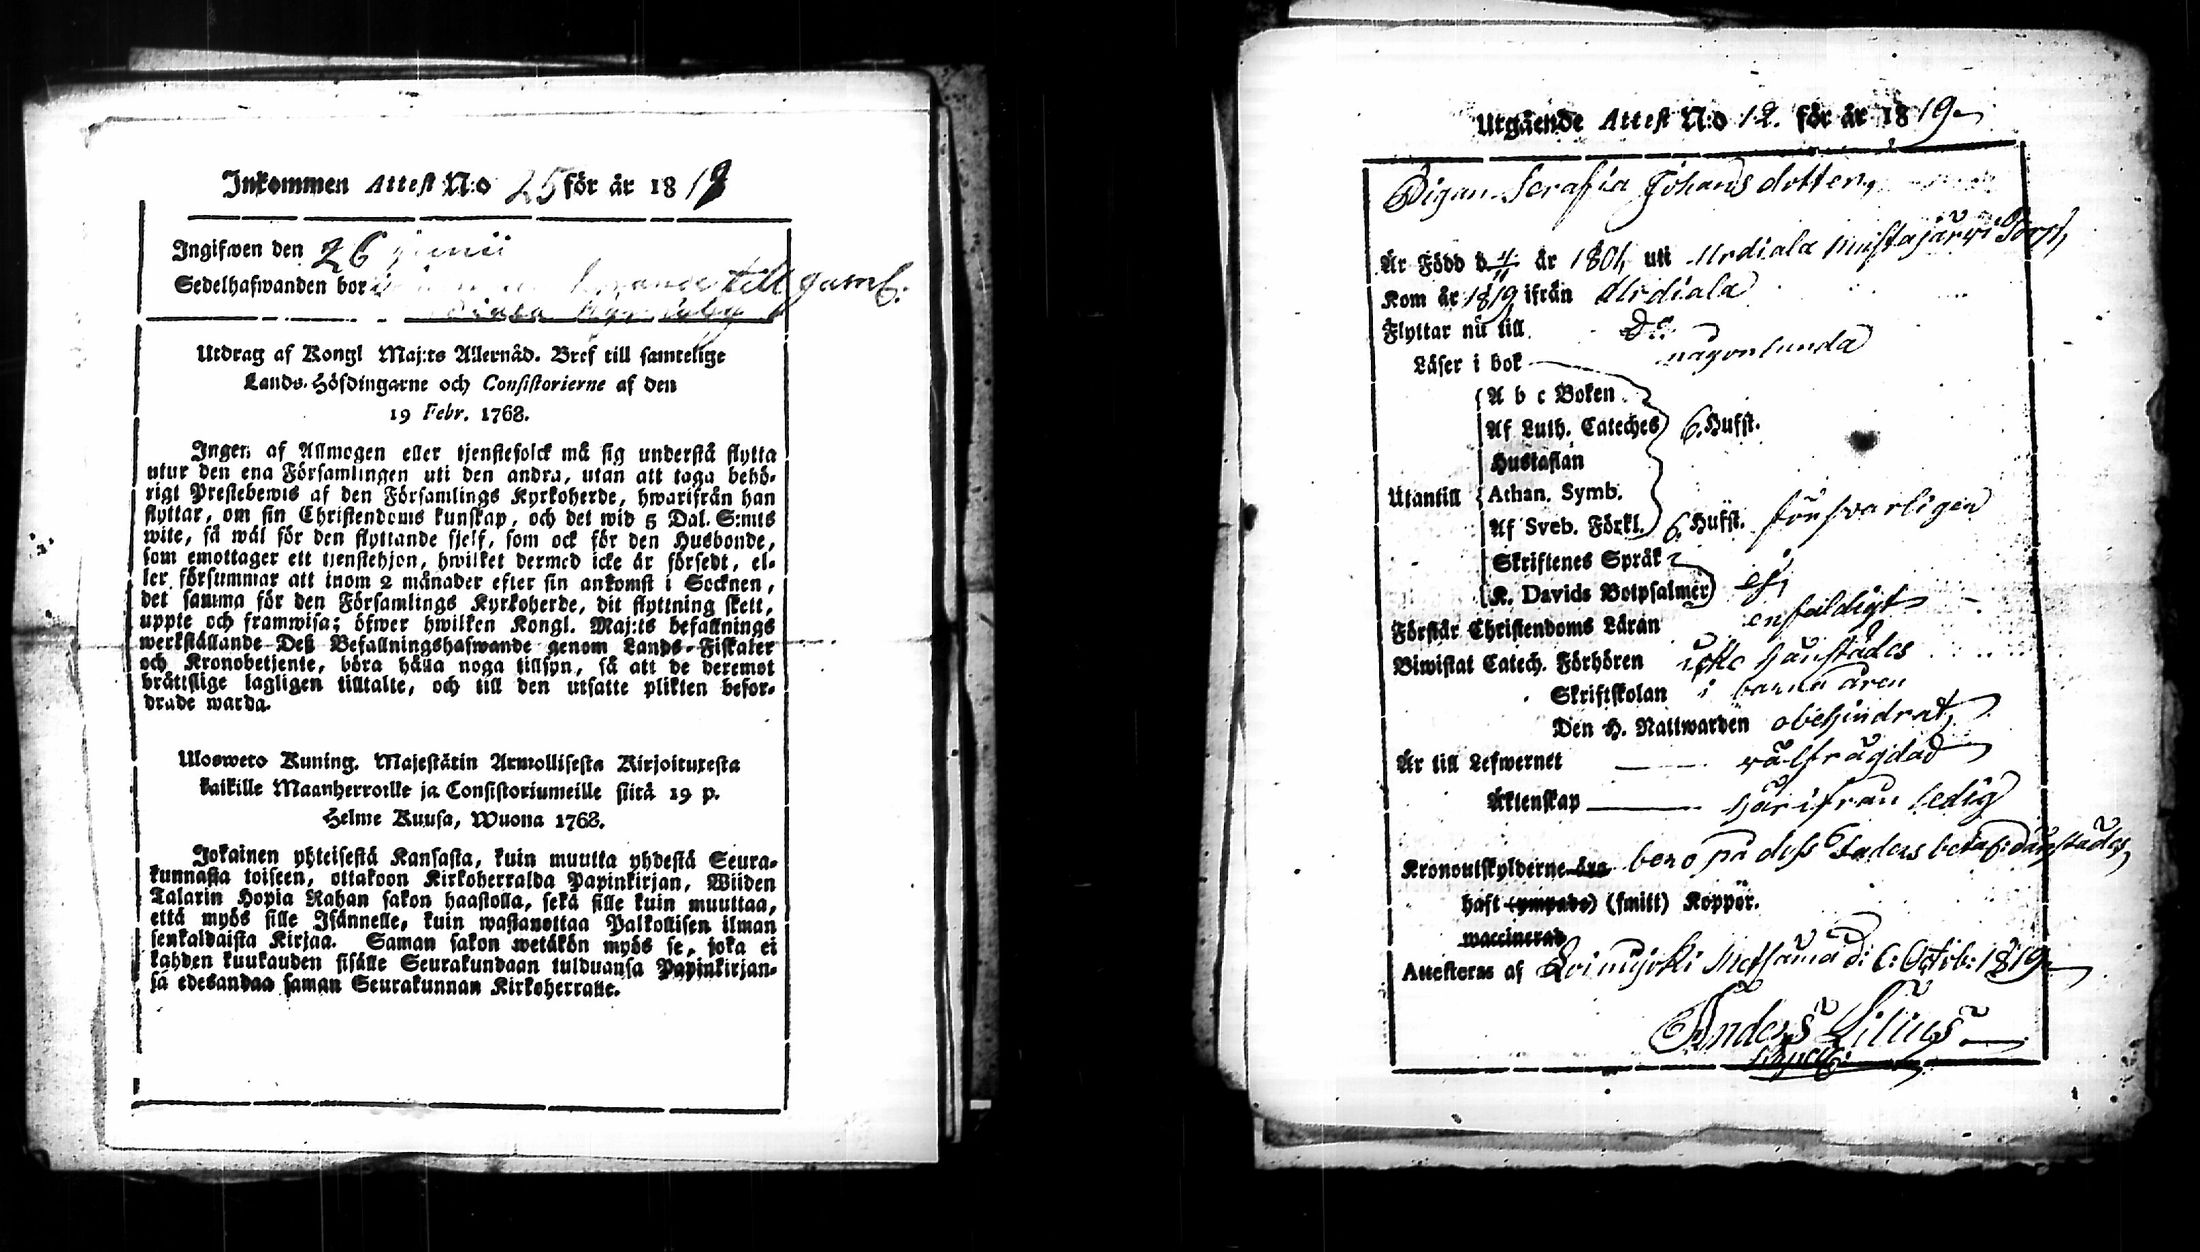 Inkommen Attest N:o 25 för år 18
Ingifwen den 26 junii
Sedelhafwanden bor till
Utdrag af Kongl Maj:ts Allernåd. Bref till samtelige
Lands-Höfdingarne och Consistorierne af den
19 Febr. 1768.
Ingen af Allmogen eller tjenstefolck må sig understå flytta
utur den ena Församlingen uti den andra, utan att taga behö-
rigt Prestebewis af den Församlings Kyrkoherde, hwarifrån han
flyttar, om sin Christendoms kunskap, och det wid 5 Dal. S:mts
wite, så wäl för den flyttande sjelf, som ock för den Husbonde,
som emottager ett tjenstehjon, hwilket dermed icke är försedt, el-
ler försummar att inom 2 månader efter sin ankomst i Socknen,
det samma för den Församlings Kyrkoherde, dit flyttning skett,
uppte och framwisa; öfwer hwilken Kongl. Maj:ts befallnings
werkställande Deß Befallningshafwande genom Lands-Fiskaler
och Kronobetjente, böra hålla noga tillsyn, så att de deremot
bråttslige lagligen tilltalte, och till den utsatte plikten befor-
drade warda.
Ulosweto Kuning. Majestätin Armollisesta Kirjoituxesta
kaikille Maanherroille ja Consistoriumeille siitä 19 p.
Helme Kuusa, Wuona 1768.
Jokainen yhteisestä Kansasta, kuin muutta yhdestä Seura-
kunnasta toiseen, ottakoon Kirkoherralda Papinkirjan, Wiiden
Talarin Hopia Rahan sakon haastolla, sekä sille kuin muuttaa,
että myös sille Isännelle, kuin wastanottaa Palkollisen ilman
senkaldaista Kirjaa. Saman sakon wetäkön myös se, joka ei
kahden kuukauden sisälle Seurakundaan tulduansa Papinkirjan-
sa edesandaa saman Seurakunnan Kirkoherralle.
Utgående Attest N:o 12. för år 1819
Pigan Serafia Johans dotter,
Är Född d. 4/11 år 1801 uti Urdiala Mustajärwi Torp,
Kom år 1819 ifrån Urdiala
Flyttar nu till D:o
Läser i bok någonlunda
A b c Boken
Af Luth. Cateches 6. Hufst.
Hustaflan
Utantill Athan. Symb.
Af Sveb. Förkl. 6. Hufst. försvarligen
Skriftenes Språk
K. Davids Botpsalmer ej,
Förstår Christendoms Läran enfaldigt
Biwistat Catech. Förhören icke härstädes
Skriftskolan i åren
Den H. Nattwarden obehindrat,
Är till Lefwernet wälfrägdad
Äktenskap härifrån ledig
Kronoutskylderne äro bero på dess Faders
haft (ympade) (smitt) Koppor.
waccinerad
Attesteras af Loimijoki Metsämaa d: 6: Octob: 1819
Anders Lilius